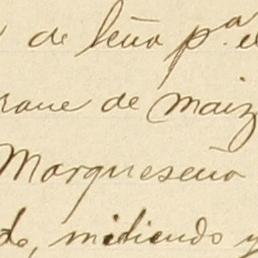 de leña pª e
rane de maiz
Marqueseña
do, midiendo y